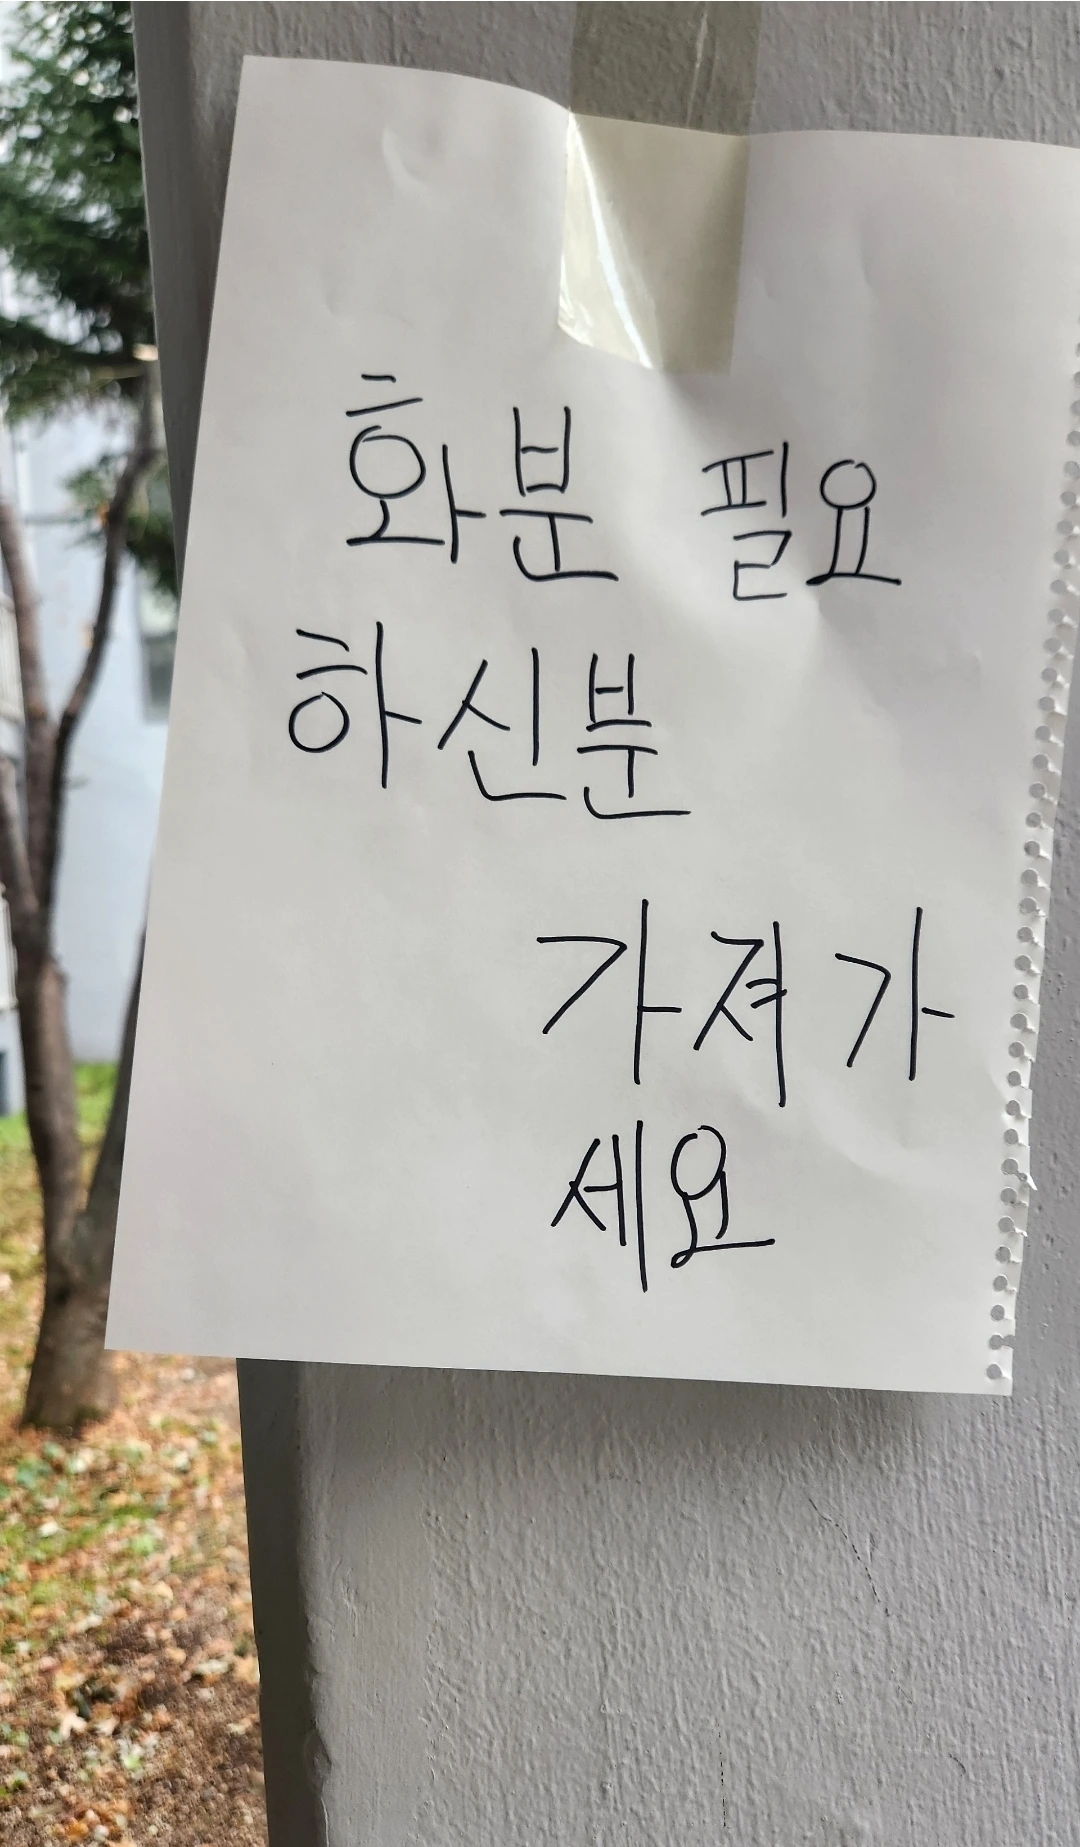 화분 필요
하신분
가져가
세요